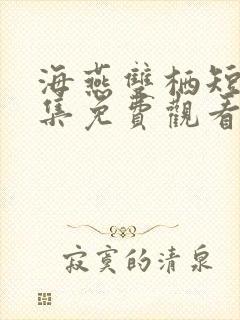 海燕雙栖短
集免費觀看
寂寞的清泉